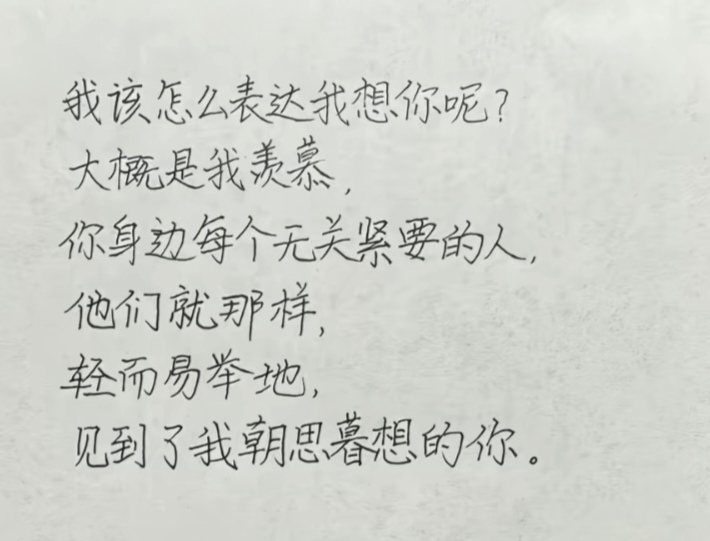 我该怎么表达我想你呢?
大概是我羡慕,
你身边每个无关紧要的人,
他们就那样,
轻而易举地,
见到了我朝思暮想的你。